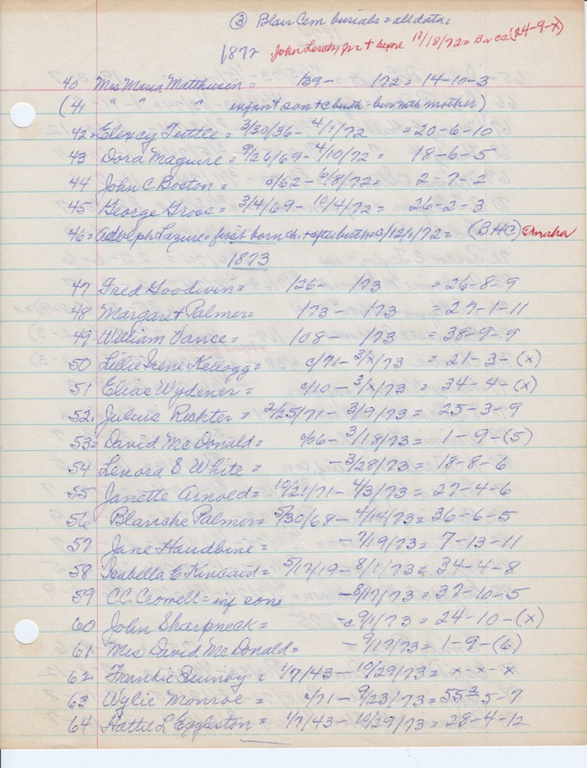 ③ Blair Cem burials = all data =
1872 John Lersky, Jr + before 11/18/72 = B + CC (24-9-x)
40 Mrs Maria Matthiesen = 139- 172 = 14-10-3
(41 " " " infant son + c birth = bur with mother)
42 = Elency Tuttle = 3/30/36 - 4/1/72 = 20-6-10
43 Dora Maguire = 9/26/69 - 4/10/72 = 18-6-5
44 John C Boston = 5/62 - 6/8/72 = 2-7-2
45 George Gross = 3/4/69 - 10/4/72 = 26-2-3
46 = Adolph Lazure = first born ch + after birth = 12/1/72 = (BHC) Omaha
1873
47 Fred Goodwin = 126 - 173 = 26-8-9
48 Margaret Palmer = 173 - 173 = 27-1-11
49 William Vance = 108 - 173 = 38-9-9
50 Lilie Irene Kellogg = c/71 - 3/x/73 = 21-3-(x)
51 Elias Wydener = c/10 - 3/x/73 = 34-4-(x)
52. Julius Richter = 2/25/71 - 3/9/73 = 25-3-9
53 = David McDonald = c/66 - 3/18/73 = 1-9-(5)
54 Lenora E White = - 3/28/73 = 18-8-6
55 Janette Arnold = 10/21/71 - 4/3/73 = 27-4-6
56 Blanche Palmer = 5/30/68 - 4/14/73 = 36-6-5
57 Jane Haudbine = - 7/19/73 = 7-13-11
58 Isabella E Kincaid = 5/17/19 - 8/1/73 = 34-4-8
59 C.C. Crowell = inf son = - 8/17/73 = 37-10-5
60 John Sharpneck = - c 9/1/73 = 24-10-(x)
61 Mrs David McDonald = - 9/17/73 = 1-9-(6)
62 = Frankie Quimby = 1/7/43 - 10/29/73 = x-x-x
63 Wylie Monroe = c/71 - 9/23/73 = 55 2 5-7
64 Hattie L Eggleston = 1/7/43 - 10/29/73 = 28-4-12